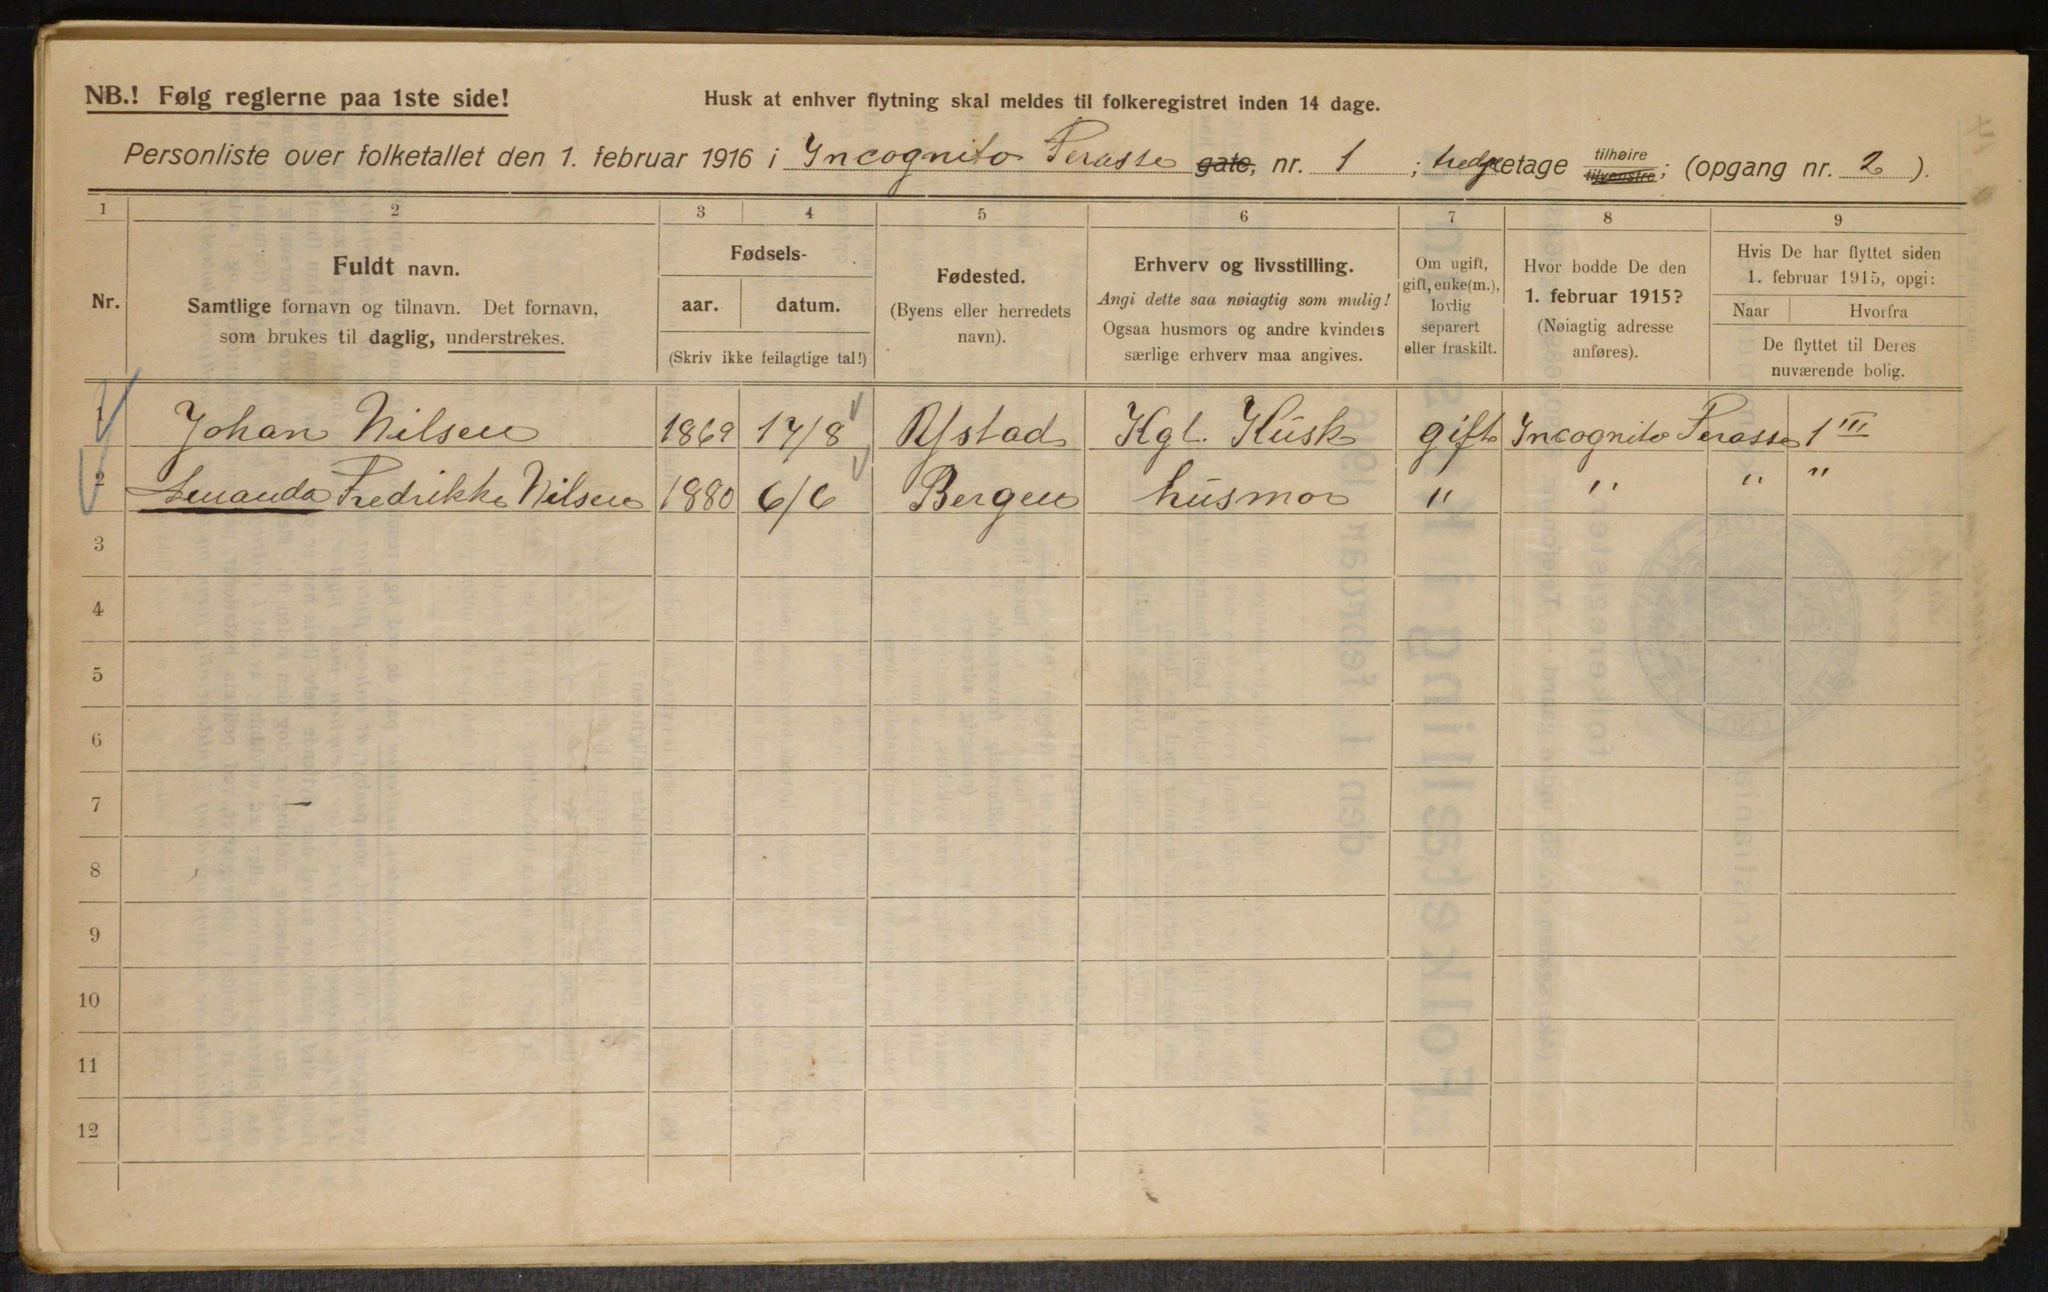 NB.! Følg reglerne paa 1ste side!
Husk at enhver flytning skal meldes til folkeregistret inden 14 dage.
Personliste over folketallet den 1. februar 1916 i Incognito Terasse gate, nr. 1 ; tredje etage tilhøire tilvenstre; (opgang nr. 2 ).
1 2 3 4 5 6 7 8 9
Nr.
Fuldt navn.
Samtlige fornavn og tilnavn. Det fornavn,
som brukes til daglig, understrekes.
Fødsels-
aar. datum.
(Skriv ikke feilagtige tal!)
Fødested.
(Byens eller herredets
navn).
Erhverv og livsstilling.
Angi dette saa nøiagtig som mulig!
Ogsaa husmors og andre kvinders
særlige erhverv maa angives.
Om ugift,
gift, enke(m.),
lovlig
separert
eller fraskilt.
Hvor bodde De den
1. februar 1915?
(Nøiagtig adresse
anføres).
Hvis De har flyttet siden
1. februar 1915, opgi:
Naar Hvorfra
De flyttet til Deres
nuværende bolig.
1 Johan Nilsen 1869 17/8 Ystad Kgl. Kusk gift Incognito Terasse 1 III
2 Fredrikke Nilsen 1880 6/6 Bergen husmor " " " "
3
4
5
6
7
8
9
10
11
12